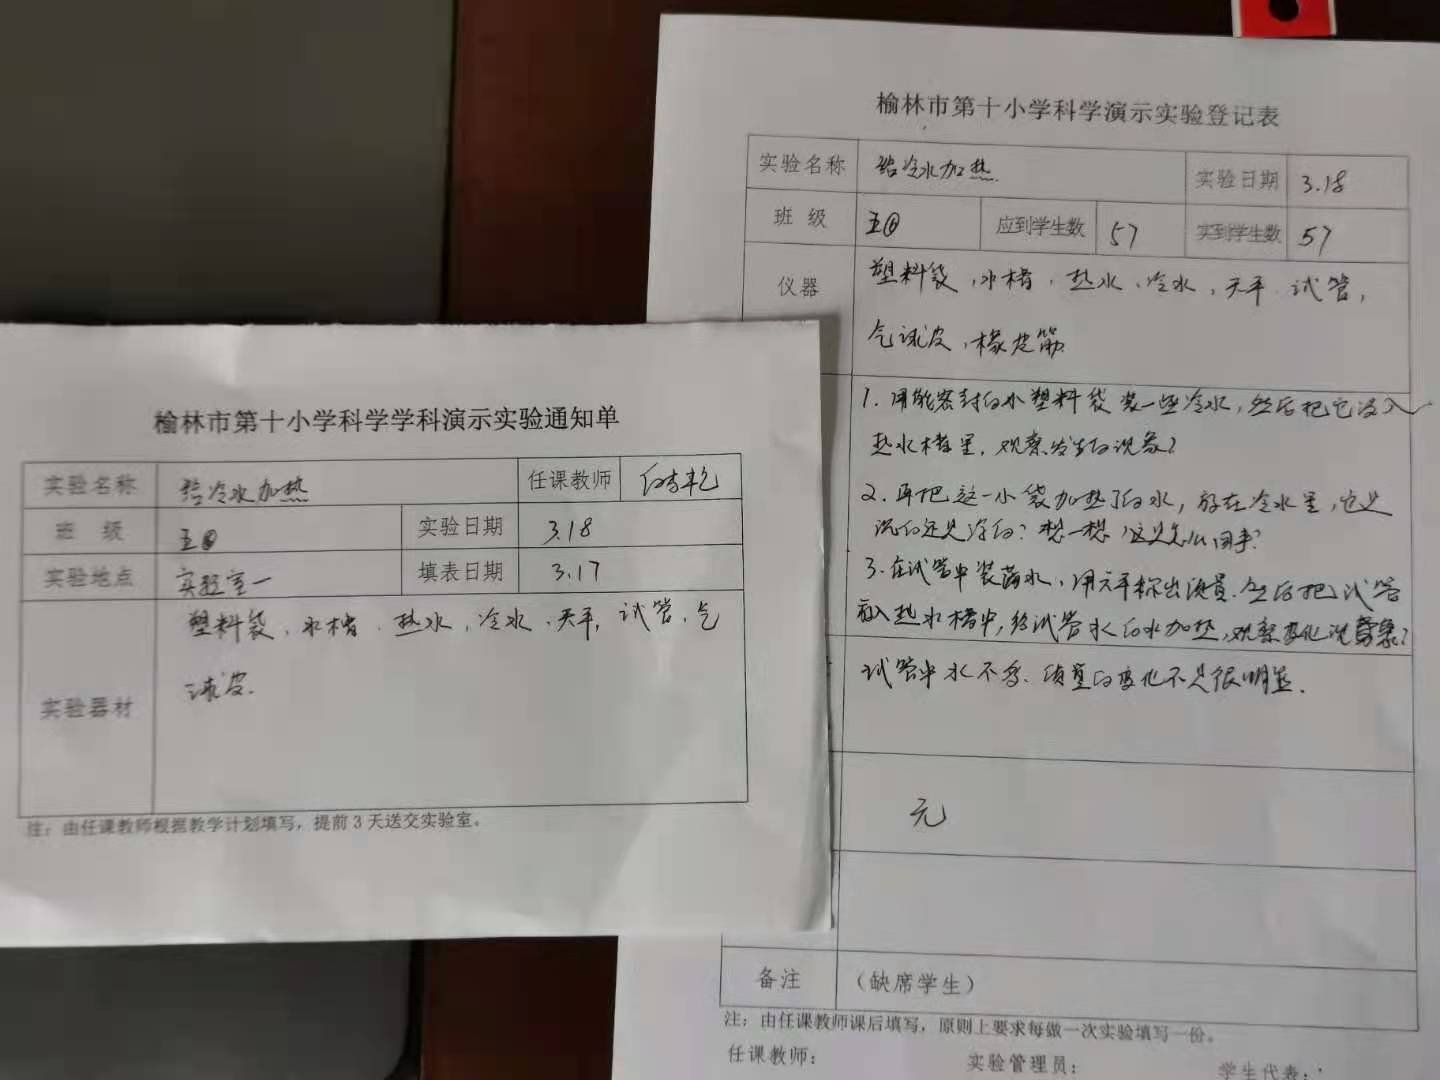 榆林市第十小学科学学科演示实验通知单
实验名称 给冷水加热 任课教师
班 级 五④ 实验日期 3.18
实验地点 实验室一 填表日期 3.17
实验器材 塑料袋、水槽、热水、冷水、天平、试管、气
球皮.
注：由任课教师根据教学计划填写，提前3天送交实验室。
榆林市第十小学科学演示实验登记表
实验名称 给冷水加热 实验日期 3.18
班 级 五④ 应到学生数 57 实到学生数 57
仪器 塑料袋、水槽、热水、冷水、天平、试管，
气球皮，橡皮筋
1. 用能密封的小塑料袋装一些冷水，然后把它浸入
热水槽里，观察发生的现象？
2. 再把这一小袋加热了的水，放在冷水里，它是
沉的还是浮的？想一想，这是怎么回事？
3. 在试管中装满水，用天平称出质量.然后把试管
放入热水槽中，给试管水的水加热，观察变化现象？
试管中水不多、质量的变化不是很明显.
无
备注 （缺席学生）
注：由任课教师课后填写，原则上要求每做一次实验填写一份。
任课教师： 实验管理员： 学生代表：